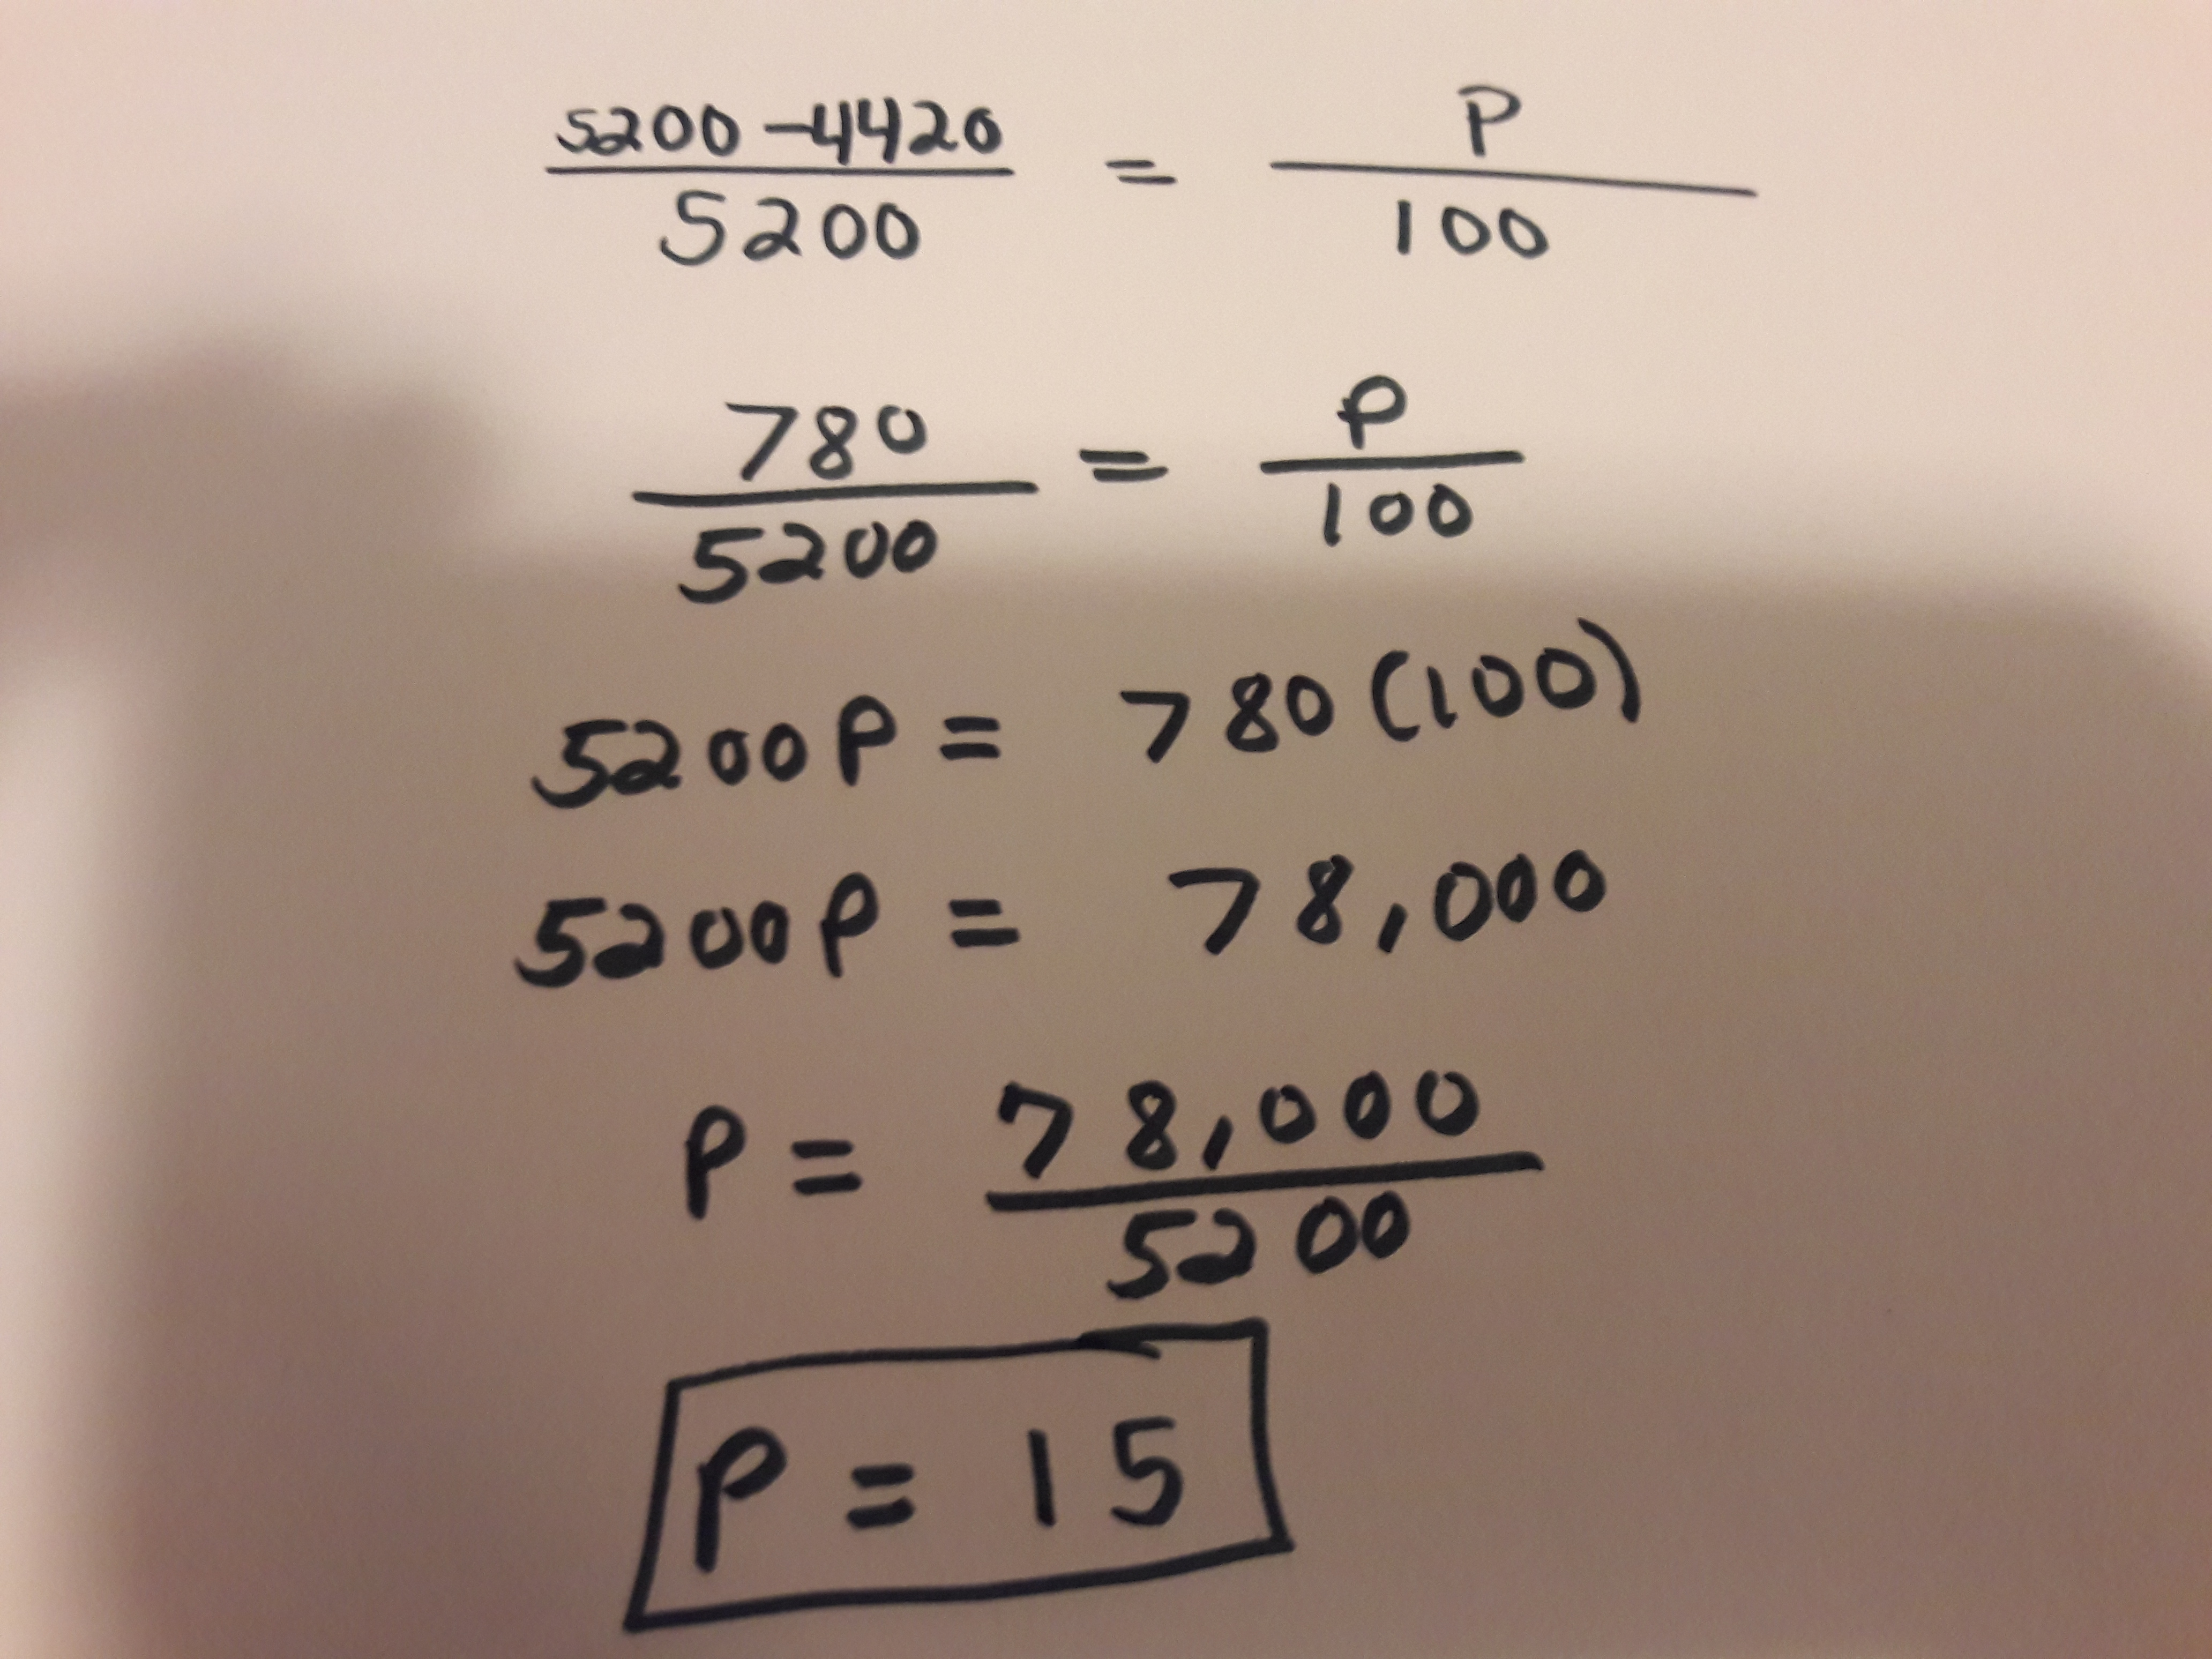 5200-4420 = P
5200 100
780 = P
5200 100
5200P = 780(100)
5200P = 78,000
P = 78,000
5200
P = 15